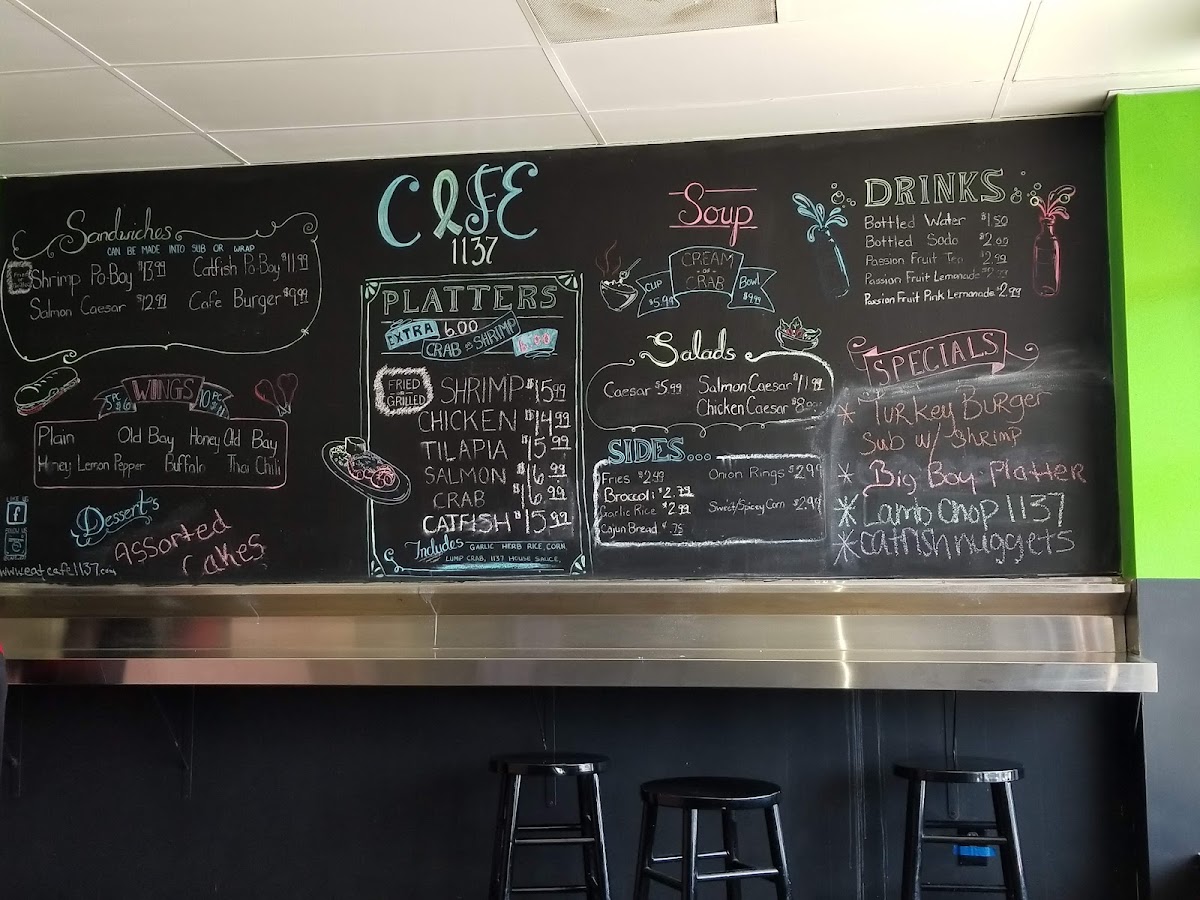 CAFE
1137
Sandwiches
CAN BE MADE INTO SUB OR WRAP
Shrimp Po-Boy $13.99 Catfish Po-Boy $11.99
Salmon Caesar $12.99 Cafe Burger $9.99
WINGS
Plain Old Bay Honey Old Bay
Honey Lemon Pepper Buffalo Thai Chili
LIKE US
f
Desserts
Assorted
Cakes
www.eatcafe1137.com
PLATTERS
EXTRA 6.00
CRAB OR SHRIMP
FRIED
OR
GRILLED
SHRIMP $15.99
CHICKEN $14.99
TILAPIA $15.99
SALMON $16.99
CRAB $16.99
CATFISH $15.99
Includes GARLIC HERB RICE CORN,
LUMP CRAB, 1137 HOUSE SAUCE,
Soup
CREAM
OF
CRAB
CUP $5.99
Bowl $9.99
Salads
Caesar $5.99 Salmon Caesar $11.99
Chicken Caesar
SIDES...
Fries $2.99 Onion Rings $2.99
Broccoli $2.79
Garlic Rice $2.99 Sweet/Spicey Corn $2.99
Cajun Bread $.75
DRINKS
Bottled Water $1.50
Bottled Soda $2.00
Passion Fruit Tea $2.99
Passion Fruit Lemonade
Passion Fruit Pink Lemonade $2.99
SPECIALS
* Turkey Burger
Sub w/ Shrimp
* Big Boy Platter
* Lamb Chop 1137
* catfish nuggets